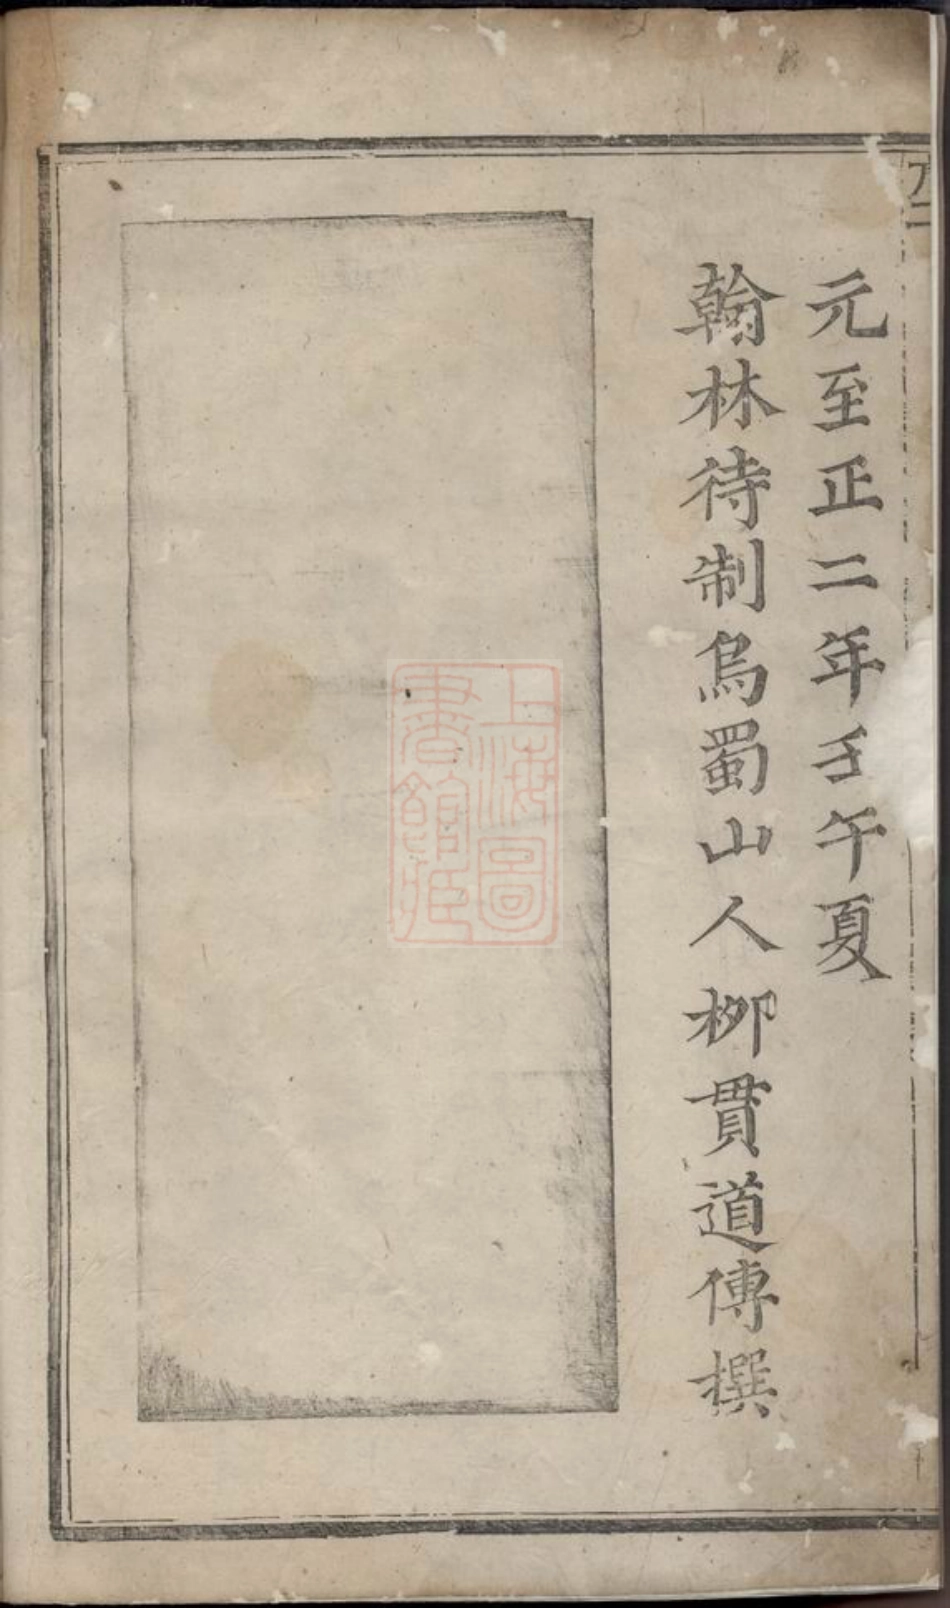 元至正二年壬午夏
翰林待制烏蜀山人柳貫道傳撰
上海圖
書館藏